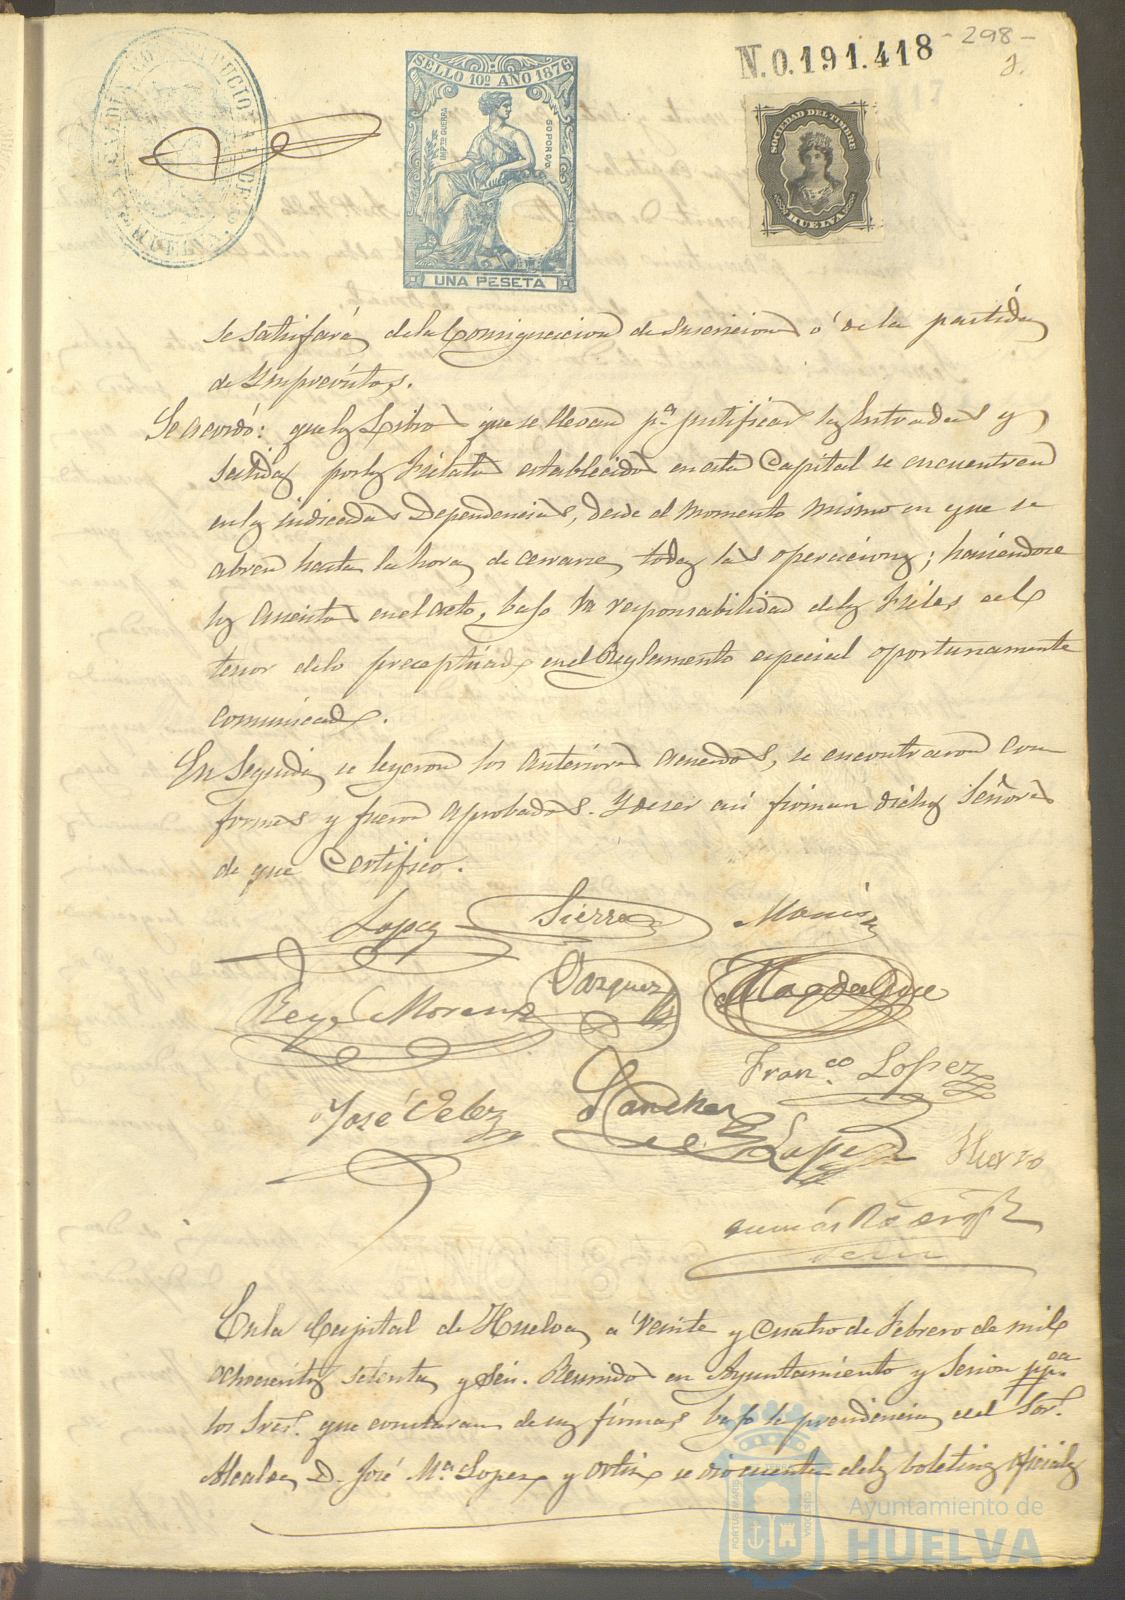 N.0.191.418
- 298 -
SELLO 10º AÑO 1876
IMPTO GUERRA
50 POR 0/0
UNA PESETA
SOCIEDAD DEL TIMBRE
HUELVA
se satisfará de la Consignacion de Suscricion ó de la partida
de Imprevistos.
Se acordó: que los Libros que se llevan pª justificar las Entradas y
salidas por los Fielatos establecidos en esta Capital se encuentren
en las indicadas Dependencias, desde el momento mismo en que se
abren hasta la hora de cerrarse todas las operaciones; haciendose
los asientos en el acto, bajo la responsabilidad de los Fieles al
tenor de lo preceptuado en el Reglamento especial oportunamente
comunicado.
En Seguida se leyeron los anteriores acuerdos, se encontraron con
formes y fueron aprobados. Y de ser asi firman dichos Señores
de que Certifico.
Lopez Sierra
Rey Moreno Vazquez
Franco Lopez
José Velez Sanchez
Lopez
En la Capital de Huelva a veinte y cuatro de Febrero de mil
ochocientos setenta y seis. Reunidos en Ayuntamiento y Sesion
los Sres. que constaran de sus firmas bajo la presidencia del Sor.
Alcalde D. José Mª Lopez y Ortiz se dio cuenta de los boletines oficiales
Ayuntamiento de
HUELVA